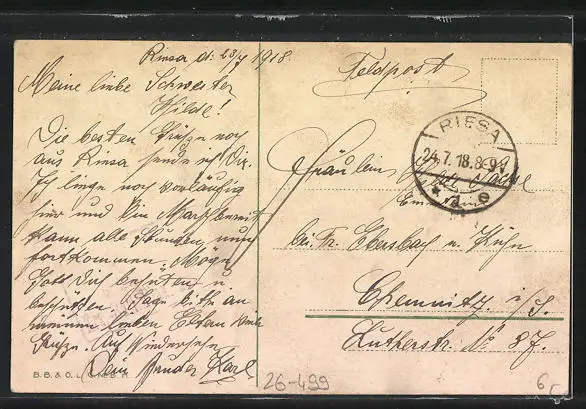 Riesa d: 23/7 1918.
Meine liebe Schwester
Hilde!
Die besten Grüße noch
aus Riesa sende ich Dir.
Ich liege noch vorläufig
hier und bin Marschbereit
kann alle Stunden nun
fortkommen. Möge
Gott Dich behüten u.
beschützen. Sage bitte an
meinen lieben Eltern viele
Grüße. Auf Wiedersehn
Dein Bruder Karl
B. B. & O. L. G. M. B. H.
Feldpost
RIESA
24.7.18.8-9V
Fräulein
Hilde
bei Fr. Ebersbach u. Kühn
Chemnitz i/S.
Lutherstr. No 87.
26-499